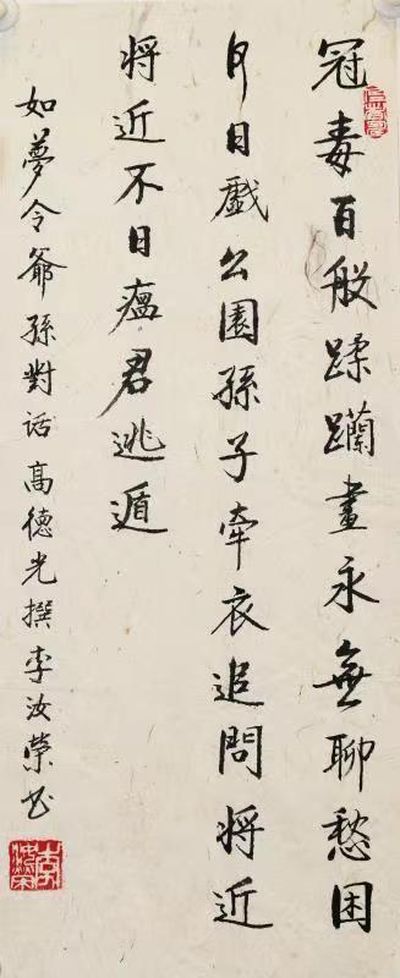 冠毒百般蹂躪畫永無聊愁困
何日戲公園孫子牽衣追問將近
將近不日瘟君逃遁
如夢令爺孫對话高德光撰李汝榮书